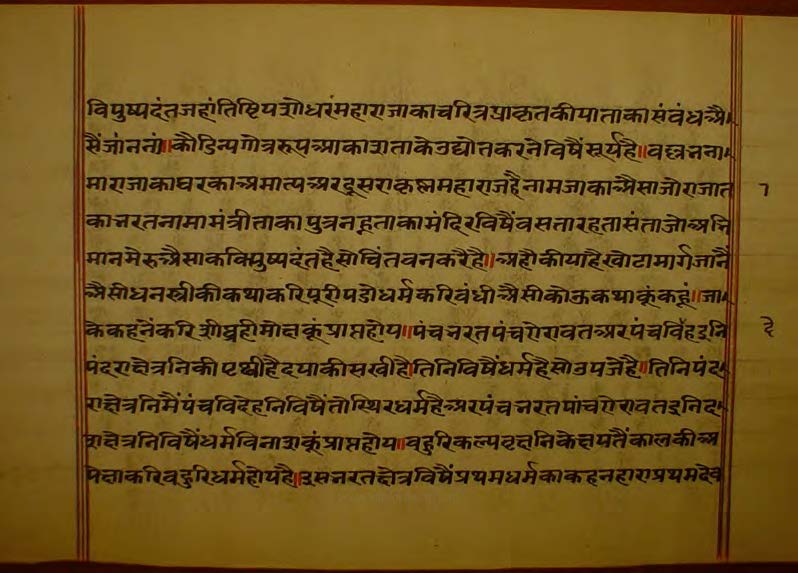 विपुष्पदंतजहांतिष्टियशोधरमहाराजाकाचरित्रप्राकृतकीयाताकासंबंधऐ
सैंजांननां॥कौडिन्यगोत्ररुपआकाशताकेउद्योतकरनेविषैंसूर्यहै॥वछभनना
माराजाकाघरकाअमात्यअरदूसराकृष्णमहाराजहैनामजाकाऐसाजोराजात
काभरतनामामंत्रीताकापुत्रनहूताकामंदिरविषैंवसतारहतासंताजोअभि
मानमेरुऐसाकविपुष्पदंतहैसोचिंतवनकरैहै॥अहौकीयाहैखोटामार्गजानैं
ऐसीधनस्त्रीकीकथाकरिपूरीपडोधर्मकरिवंधीऐसीकोऊकथाकूंकहूं॥जा
केकहनेंकरिशीघ्रहीमोक्षकूंप्राप्तहोय॥पंचभरतपंचऐरावतअरपंचविदेहइनि
पंदराक्षेत्रनिकीपृथ्वीहैदयाकीसखीहै॥तिनिविषैंधर्महैसोउपजेहै॥तिनिपंद
राक्षेत्रनिमैंपंचविदेहनिविषैंतोस्थिरधर्महैअरपंचभरतपांचऐरावतइनिद
शक्षेत्रनिविषैंधर्मविनाशकूंप्राप्तहोय॥वहुरिकल्पवृक्षनिकेक्षयतैंकालकीअ
पेक्षाकरिवहुरिधर्महोयहै॥उसभरतक्षेत्रविषैंप्रथमधर्मकाकहनहाराप्रथमदेव